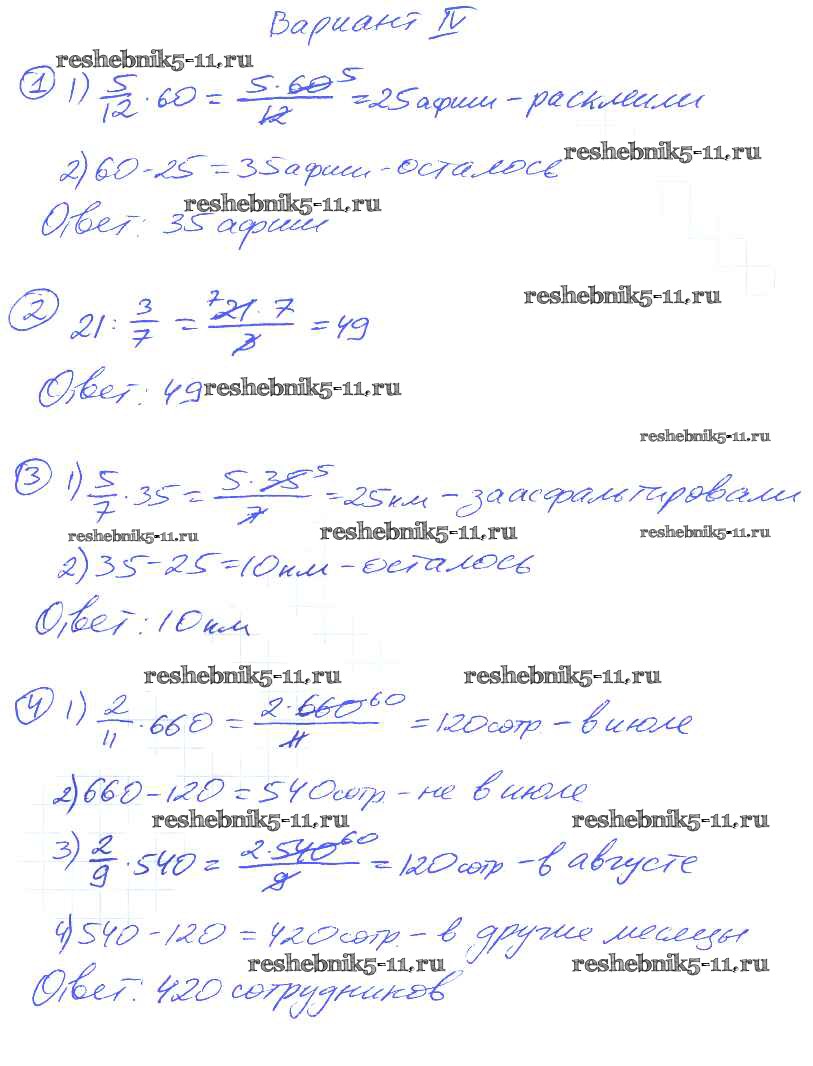 Вариант IV
reshebnik5-11.ru
1 1) 5/12 · 60 = 5 · 60 5 / 12 = 25 афиш – расклеили
2) 60 - 25 = 35 афиш - осталось reshebnik5-11.ru
reshebnik5-11.ru
Ответ: 35 афиш
reshebnik5-11.ru
2 21 : 3/7 = 7 21 · 7 / 3 = 49
Ответ: 49 reshebnik5-11.ru
reshebnik5-11.ru
3 1) 5/7 · 35 = 5 · 35 5 / 7 = 25 км – заасфальтировали
reshebnik5-11.ru reshebnik5-11.ru reshebnik5-11.ru
2) 35 - 25 = 10 км - осталось
Ответ: 10 км
reshebnik5-11.ru reshebnik5-11.ru
4 1) 2/11 · 660 = 2 · 660 60 / 11 = 120 сотр – в июле
2) 660 - 120 = 540 сотр - не в июле
reshebnik5-11.ru reshebnik5-11.ru
3) 2/9 · 540 = 2 · 540 60 / 9 = 120 сотр - в августе
4) 540 - 120 = 420 сотр. - в другие месяцы
reshebnik5-11.ru reshebnik5-11.ru
Ответ: 420 сотрудников